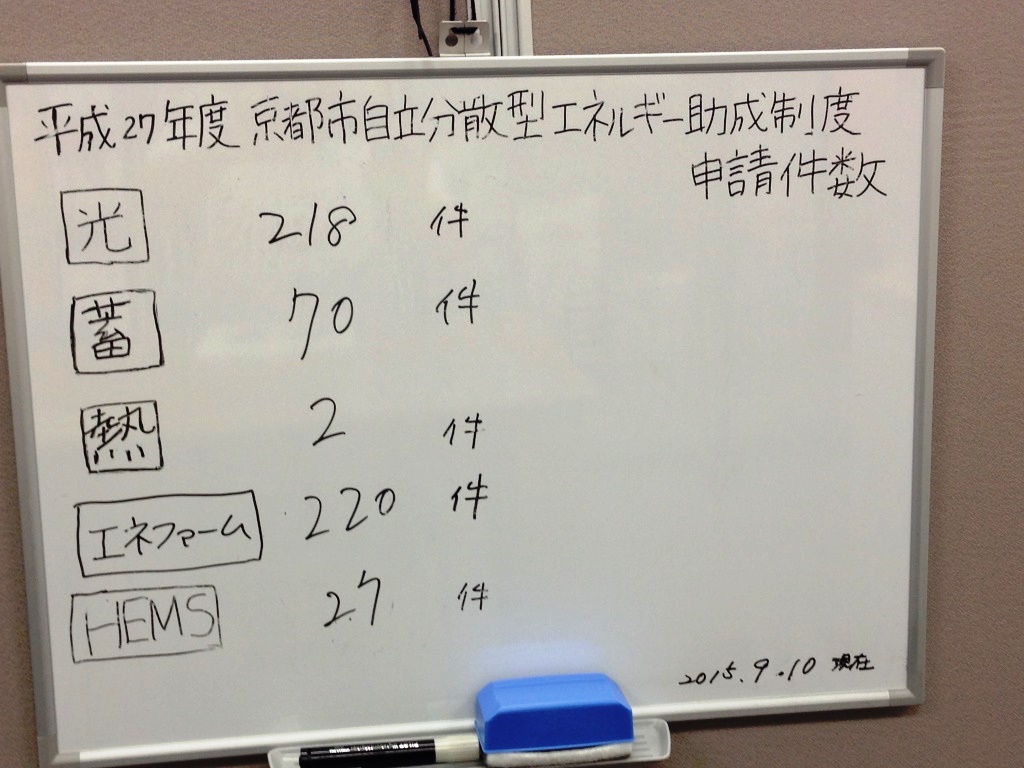 平成27年度 京都市自立分散型エネルギー助成制度
申請件数
光 218 件
蓄 70 件
熱 2 件
エネファーム 220 件
HEMS 27 件
2015.9.10 現在